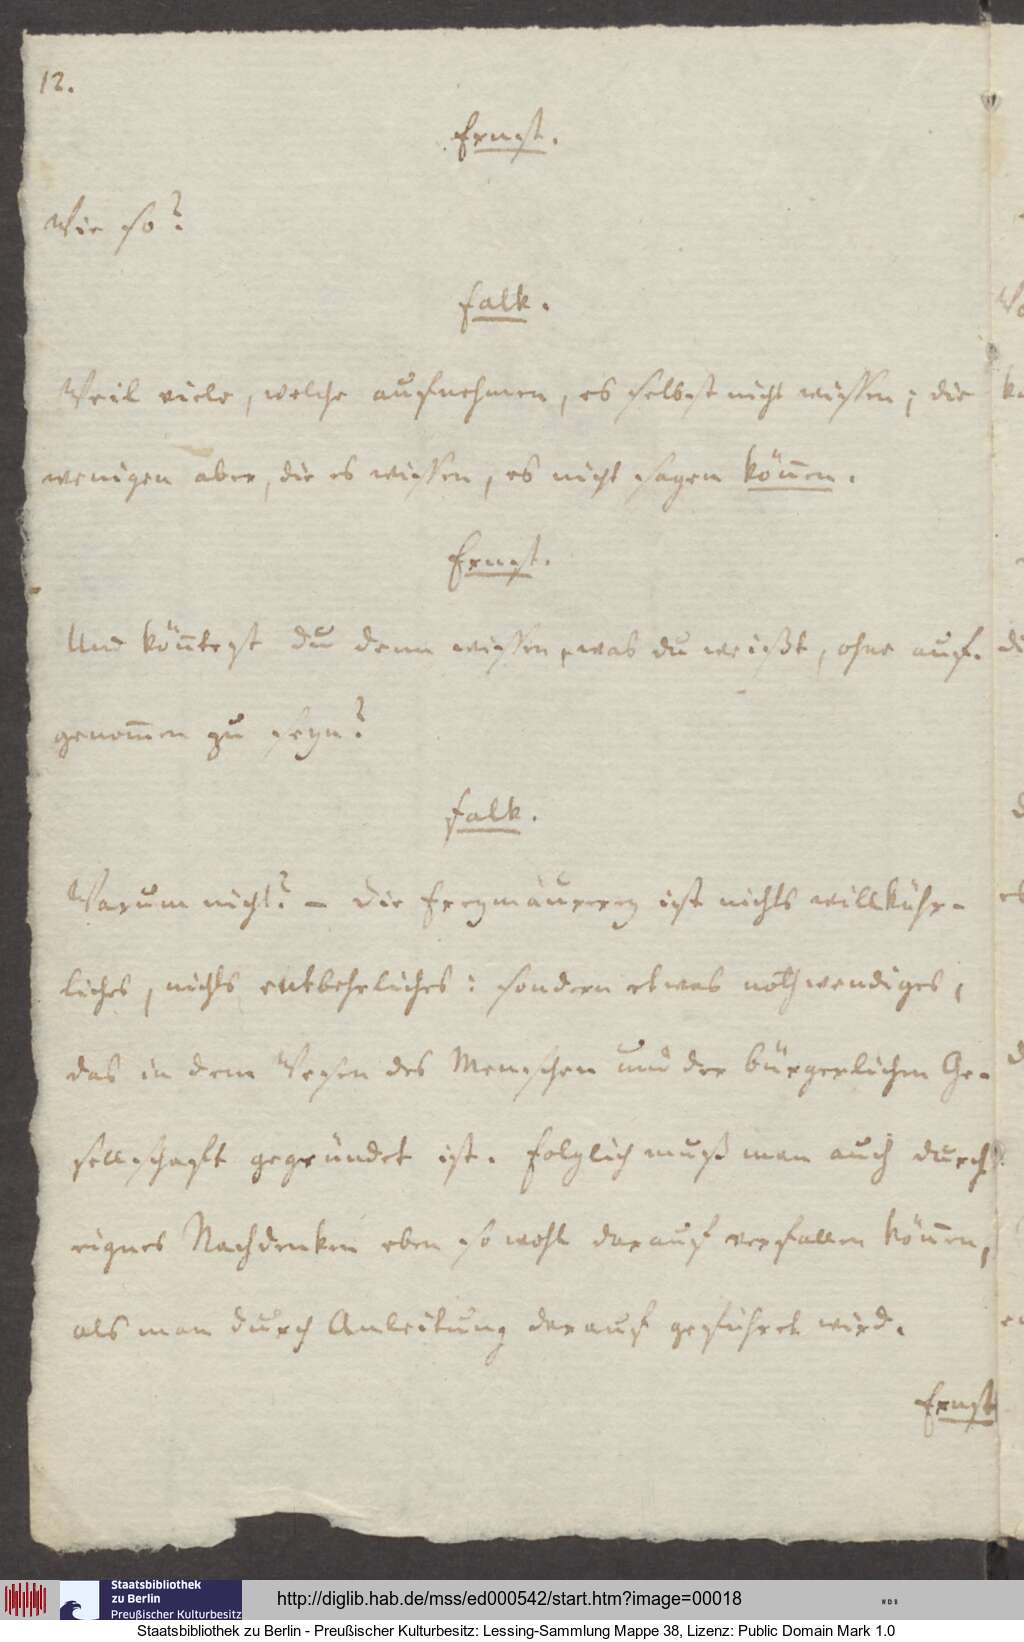 12.
Ernst.
Wie so?
Falk.
Weil viele, welche aufnehmen, es selbst nicht wissen; die
wenigen aber, die es wissen, es nicht sagen können.
Ernst.
Und könntest du denn wissen, was du weißt, ohne auf-
genommen zu seyn?
Falk.
Warum nicht? – Die Freymäurerey ist nichts willkühr-
liches, nichts entbehrliches: sondern etwas nothwendiges,
das in dem Wesen des Menschen und der bürgerlichen Ge-
sellschaft gegründet ist. Folglich muß man auch durch
eignes Nachdenken eben so wohl darauf verfallen können,
als man durch Anleitung darauf geführet wird.
Ernst
Staatsbibliothek
zu Berlin
Preußischer Kulturbesitz
http://diglib.hab.de/mss/ed000542/start.htm?image=00018
Staatsbibliothek zu Berlin - Preußischer Kulturbesitz: Lessing-Sammlung Mappe 38, Lizenz: Public Domain Mark 1.0